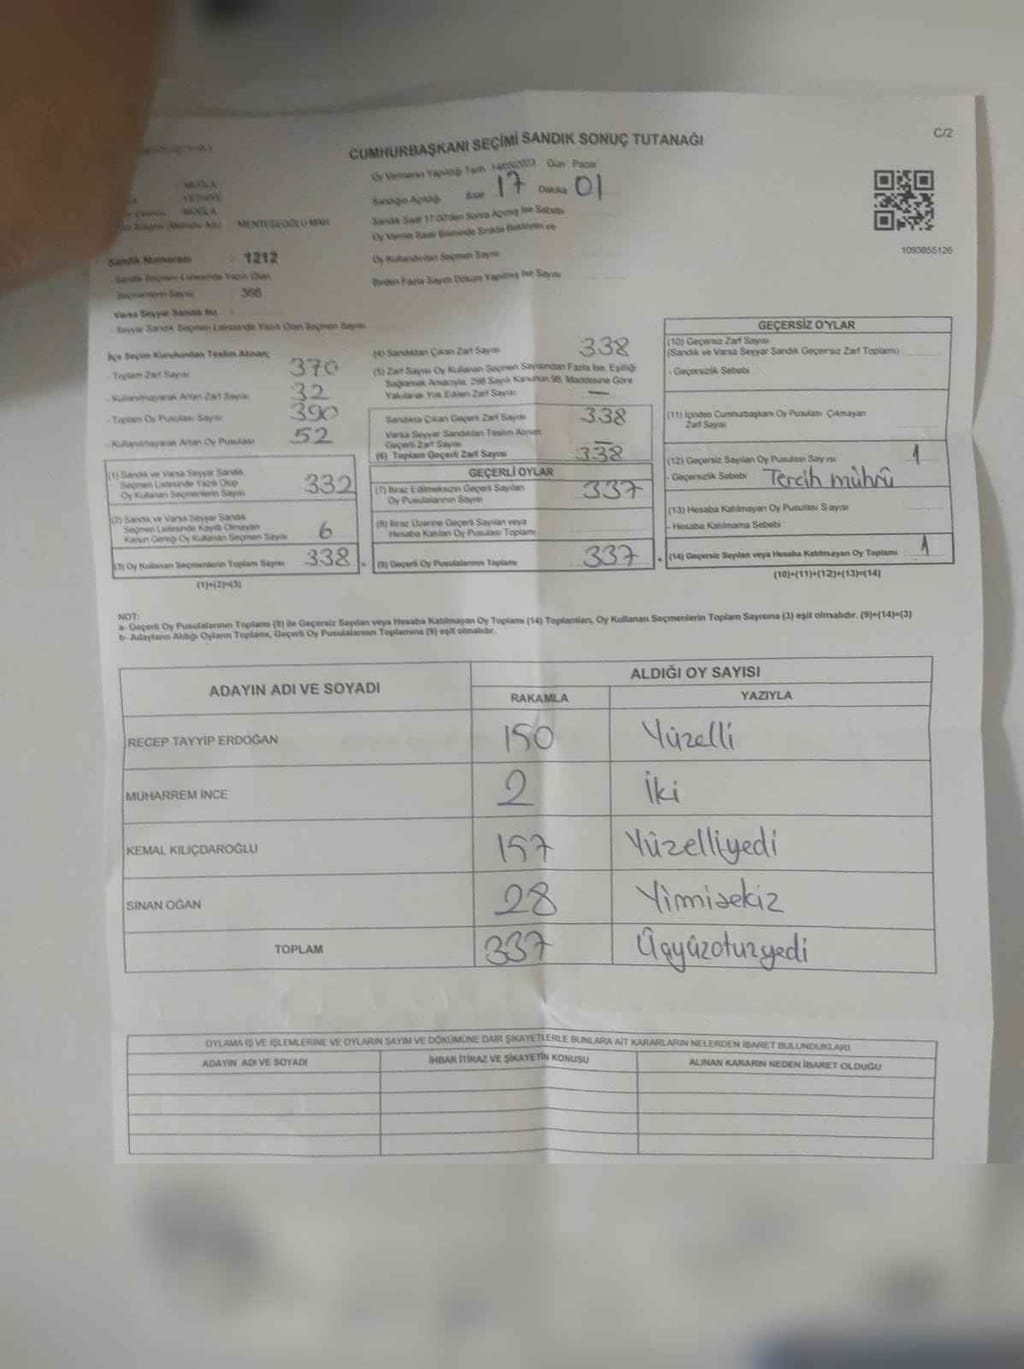 C/2
CUMHURBAŞKANI SEÇİMİ SANDIK SONUÇ TUTANAĞI
Oy Vermenin Yapıldığı Tarih 14/05/2023 Gün Pazar
MUĞLA
Sandığın Açıldığı Saat 17 Dakika 01
MUĞLA
MENTEŞEOĞLU MAH.
Sandık Saat 17:00'den Sonra Açılmış İse Sebebi
Oy Verme Saati Bitiminde Sırada Bekleyen ve
Oy Kullandırılan Seçmen Sayısı
Sandık Numarası 1212
1093855126
Sandık Seçmen Listesinde Yazılı Olan
Seçmenlerin Sayısı 366
Birden Fazla Sayım Döküm Yapılmış İse Sayısı
Varsa Seyyar Sandık No
Seyyar Sandık Seçmen Listesinde Yazılı Olan Seçmen Sayısı
İlçe Seçim Kurulundan Teslim Alınan;
- Toplam Zarf Sayısı 370
- Kullanılmayarak Artan Zarf Sayısı 32
- Toplam Oy Pusulası Sayısı 390
- Kullanılmayarak Artan Oy Pusulası 52
(1) Sandık ve Varsa Seyyar Sandık
Seçmen Listesinde Yazılı Olup
Oy Kullanan Seçmenlerin Sayısı 332
(2) Sandık ve Varsa Seyyar Sandık
Seçmen Listesinde Kayıtlı Olmayan
Kanun Gereği Oy Kullanan Seçmen Sayısı 6
(3) Oy Kullanan Seçmenlerin Toplam Sayısı 338
(1)+(2)=(3)
(4) Sandıktan Çıkan Zarf Sayısı 338
(5) Zarf Sayısı Oy Kullanan Seçmen Sayısından Fazla İse, Eşitliği
Sağlamak Amacıyla, 298 Sayılı Kanunun 98. Maddesine Göre
Yakılarak Yok Edilen Zarf Sayısı —
Sandıkta Çıkan Geçerli Zarf Sayısı 338
Varsa Seyyar Sandıktan Teslim Alınan
Geçerli Zarf Sayısı —
(6) Toplam Geçerli Zarf Sayısı 338
GEÇERLİ OYLAR
(7) İtiraz Edilmeksizin Geçerli Sayılan
Oy Pusulalarının Sayısı 337
(8) İtiraz Üzerine Geçerli Sayılan veya
Hesaba Katılan Oy Pusulası Toplamı
(9) Geçerli Oy Pusulalarının Toplamı 337
GEÇERSİZ OYLAR
(10) Geçersiz Zarf Sayısı
(Sandık ve Varsa Seyyar Sandık Geçersiz Zarf Toplamı)
- Geçersizlik Sebebi
(11) İçinden Cumhurbaşkanı Oy Pusulası Çıkmayan
Zarf Sayısı
(12) Geçersiz Sayılan Oy Pusulası Sayısı 1
- Geçersizlik Sebebi Tercih mührü
(13) Hesaba Katılmayan Oy Pusulası Sayısı
- Hesaba Katılmama Sebebi :
(14) Geçersiz Sayılan veya Hesaba Katılmayan Oy Toplamı 1
(10)+(11)+(12)+(13)=(14)
NOT:
a- Geçerli Oy Pusulalarının Toplamı (9) ile Geçersiz Sayılan veya Hesaba Katılmayan Oy Toplamı (14) Toplamları, Oy Kullanan Seçmenlerin Toplam Sayısına (3) eşit olmalıdır. (9)+(14)=(3)
b- Adayların Aldığı Oyların Toplamı, Geçerli Oy Pusulalarının Toplamına (9) eşit olmalıdır.
ADAYIN ADI VE SOYADI ALDIĞI OY SAYISI
RAKAMLA YAZIYLA
RECEP TAYYİP ERDOĞAN 150 Yüzelli
MUHARREM İNCE 2 İki
KEMAL KILIÇDAROĞLU 157 Yüzelliyedi
SİNAN OĞAN 28 Yimisekiz
TOPLAM 337 Üçyüzotuzyedi
OYLAMA İŞ VE İŞLEMLERİNE VE OYLARIN SAYIM VE DÖKÜMÜNE DAİR ŞİKAYETLERLE BUNLARA AİT KARARLARIN NELERDEN İBARET BULUNDUKLARI
ADAYIN ADI VE SOYADI İHBAR İTİRAZ VE ŞİKAYETİN KONUSU ALINAN KARARIN NEDEN İBARET OLDUĞU